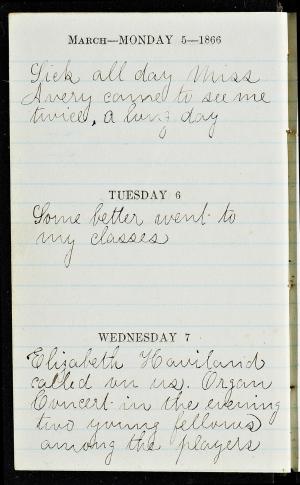 March—MONDAY 5—1866
Sick all day Miss
Avery came to see me
twice, a long day
TUESDAY 6
Some better went to
my classes
WEDNESDAY 7
Elizabeth Haviland
called on us. Organ
Concert in the evening
two young fellows
among the players